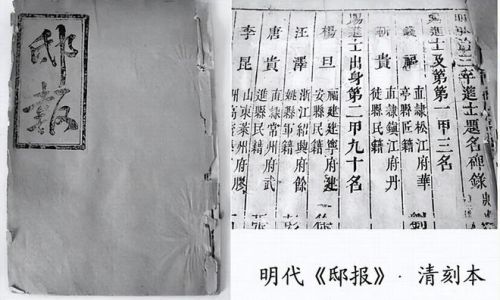 邸報
治三年進士題名碑錄
進士及第第一甲三名
錢福
直隸松江府華
亭縣匠籍
靳貴
直隸鎮江府丹
徒縣民籍
賜進士出身第二甲九十名
楊旦
福建建寧府建
安縣民籍
汪澤
浙江紹興府餘
姚縣軍籍
唐貴
直隸常州府武
進縣民籍
李昆
山東萊州府膠
明代《邸报》·清刻本